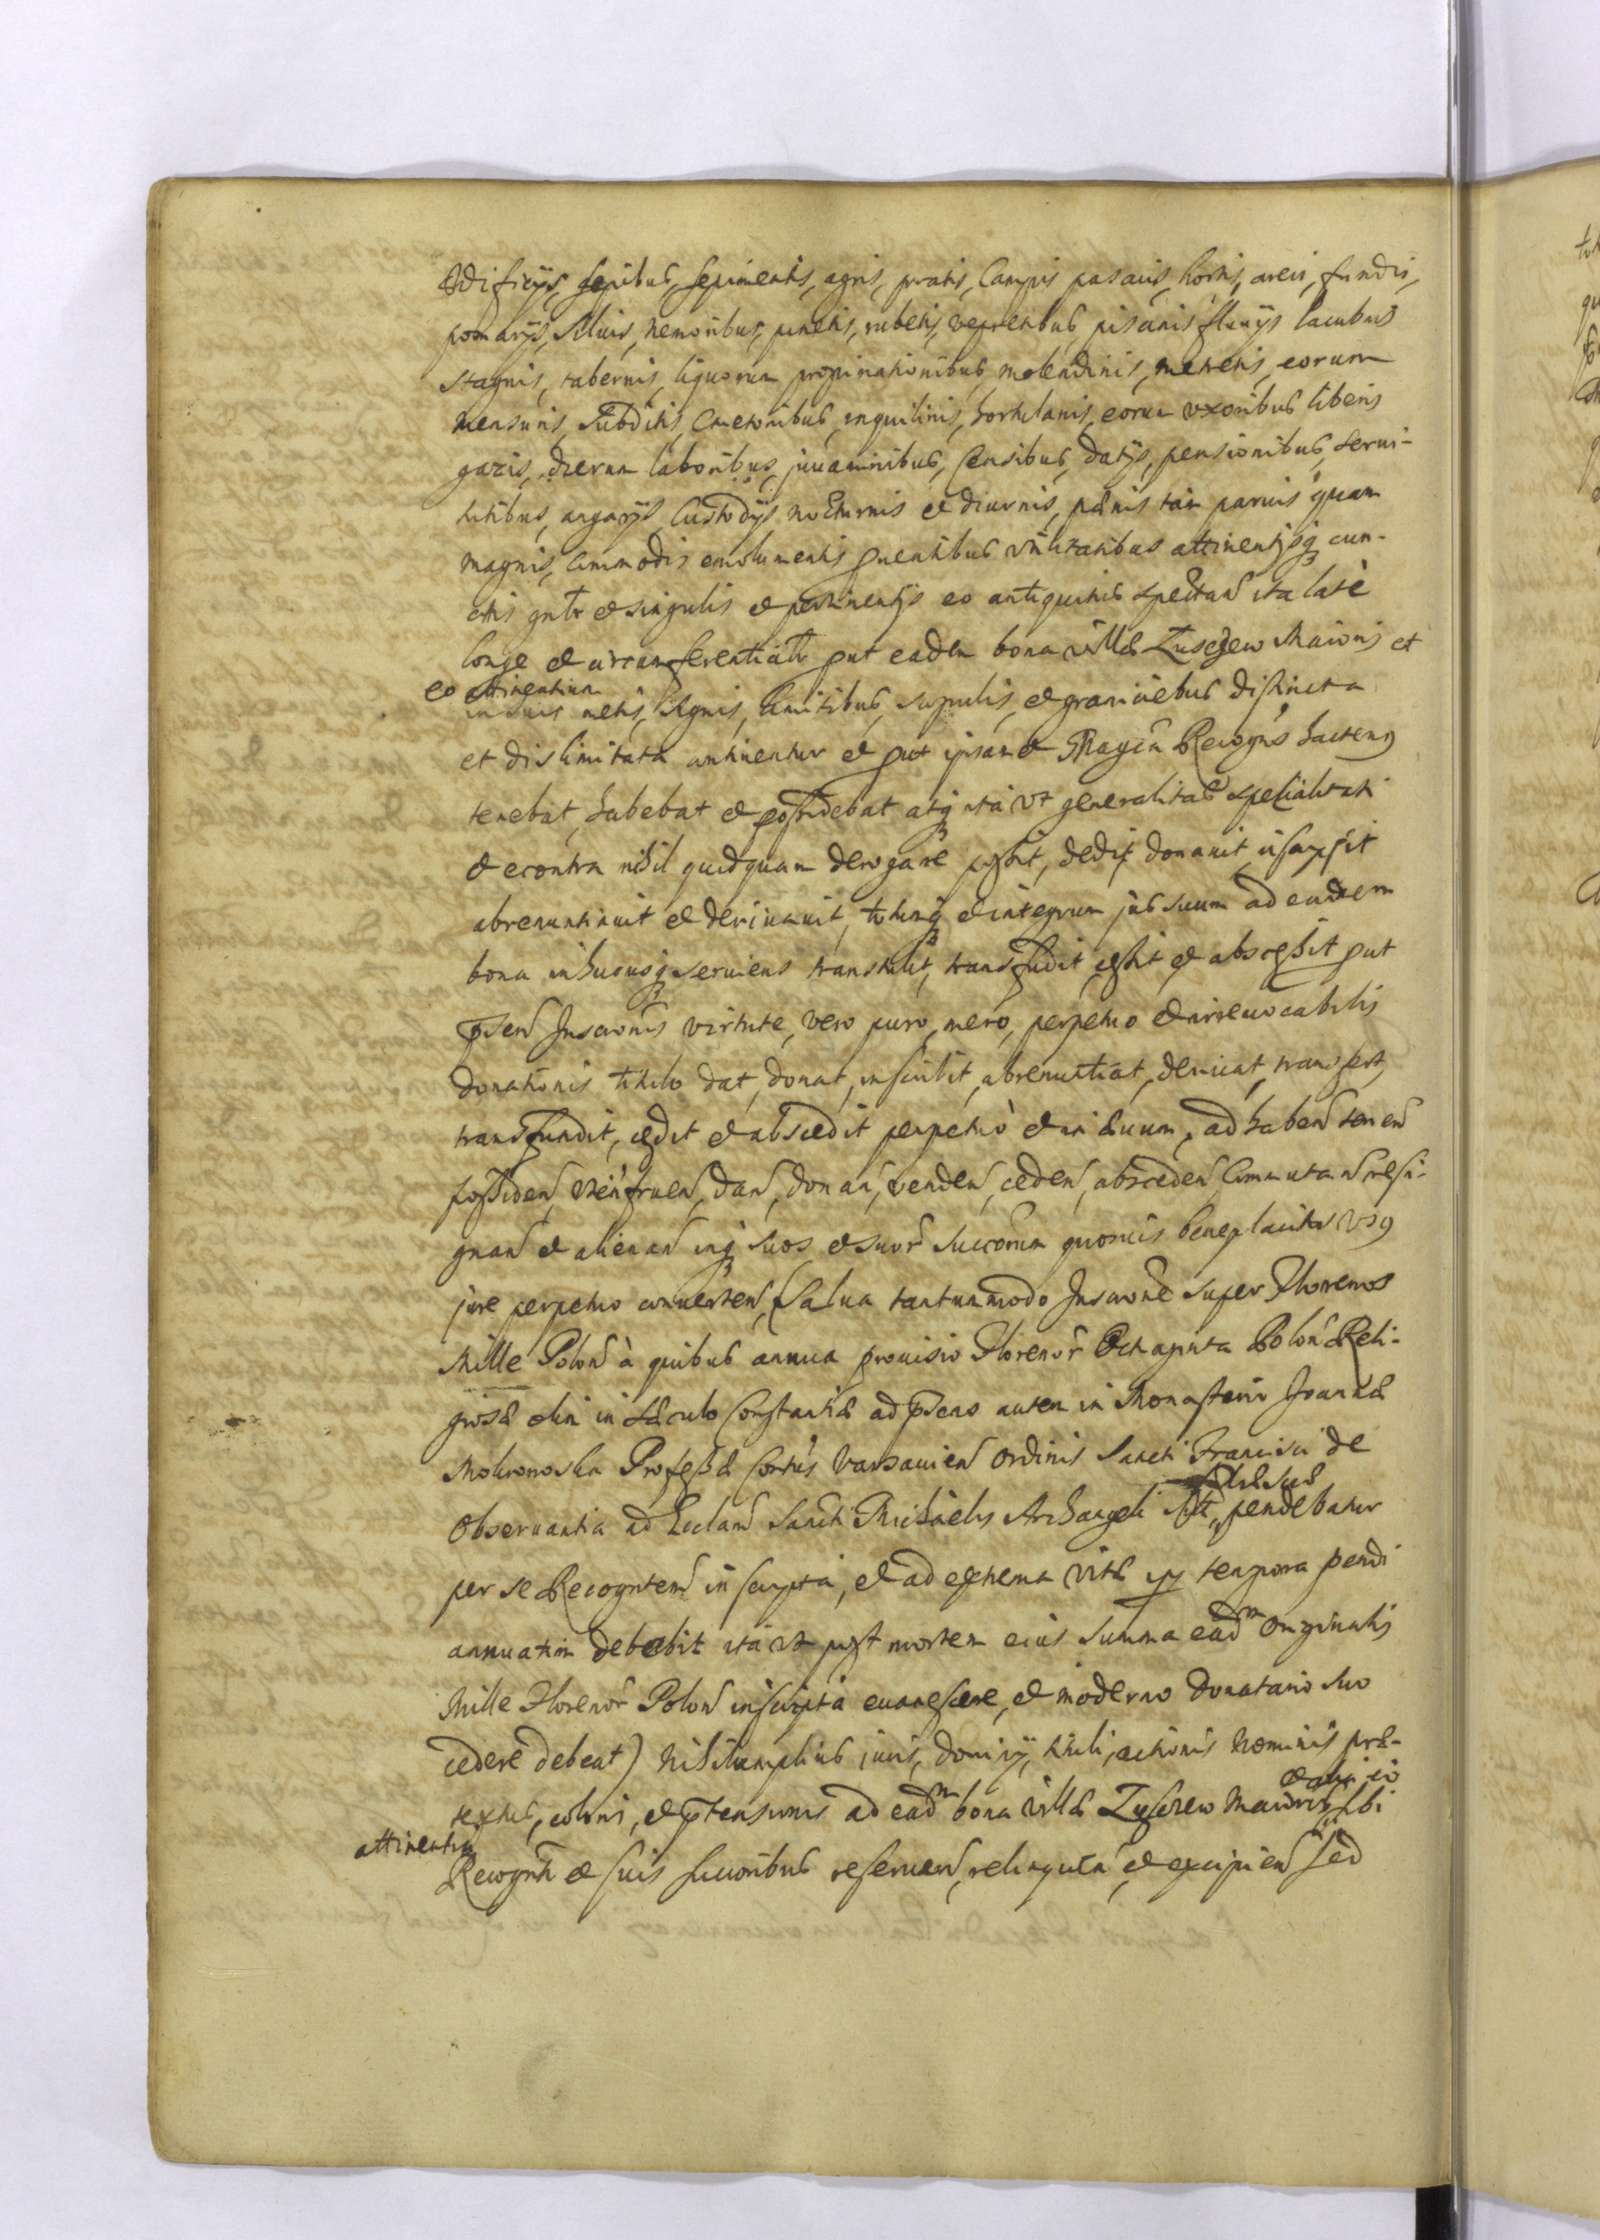 Ædificijs, sepibus, sepimentis, agris, pratis, Campis pascuis, hortis, areis, fundis,
pomarijs, Siluis, nemoribus, pinetis, rubetis, vepretibus piscinis fluuijs lacubus
stagnis, tabernis, liquorum propinationibus, molendinis, metretis, eorum
mensuris, Subditis, Cmetonibus, inquilinis, hortulanis, eorum vxoribus liberis
gazis, dierum laboribus, juuaminibus, Censibus, datijs, pensionibus, serui-
tutibus, angarijs Custodijs nocturnis et diurnis, pænis tam paruis quam
magnis, commodis emolumentis prouentibus vtilitatibus attinentijsq3 cun-
ctis gnlr et singulis et pertinentijs eo antiquitus spectan ita latè
longe et circumferentialr put eadem bona villæ Zuschew Maioris et
eo attinentium
in suis metis, signis, limitibus, scopulis, et graniciebus distincta
et dislimitata continentur et put ipsamet Magca Recogns hactenus
tenebat, habebat et possidebat atq3 ita vt generalitas specialitati
et econtra nihil quidquam derogare possit, dedit, donauit, inscripsit
abrenuntiauit et deriuauit, totumq3 et integrum jus suum ad eadem
bona inhucusq3 seruiens transtulit, transfudit, cessit et abscessit put
psen Inscronis virtute, vero puro, mero, perpetuo et irreuocabilis
donationis titulo dat, donat, inscribit, abrenuntiat, deriuat, transfert,
transfundit, cedit et abscedit perpetuò et in æuum, ad haben tenen
possiden, vtifruen, dan, donan, venden, ceden, absceden Commutan resi-
gnan et alienan inq3 suos et suor Succorum quosuis beneplacitos vsus
jure perpetuo conuerten, (Salua tantummodo Inscrone super Florenos
Mille Polon à quibus annua prouisio Florenor Octaginta Polon Reli-
giosæ olim in sæculo Constantiæ ad psens autem in Monasterio Joannæ
Mokronoska Professæ Contus Varsauien Ordinis Sancti Francisci de
Obseruantia ad Ecclam Sancti Michaelis Archangeli pendebatur
per se Recognten inscripta, et ad extrema vitæ tempora pendi
annuatim debebit ita vt post mortem eius summa eadm Originalis
Mille Florenor Polon inscripta euanescere, et moderno Donatario suo
cedere debeat) nihil amplius iuris, dominij, tituli, actionis Nominis præ-
textus, coloris, et ptensionis ad eadm bona villæ Zuschew Maioris sibi
attinentium
Recognti et suis succoribus reseruan, relinquen, et excipien sed